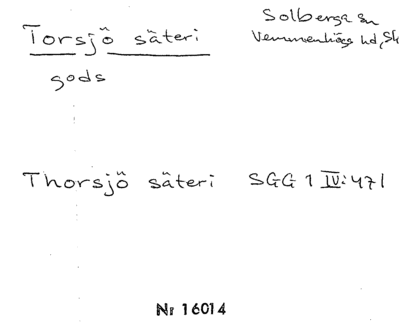 Torsjö säteri
Solberga sn
Vemmenhögs hd, Sk
gods
Thorsjö säteri SGG 1 IV:471
Nr 16014